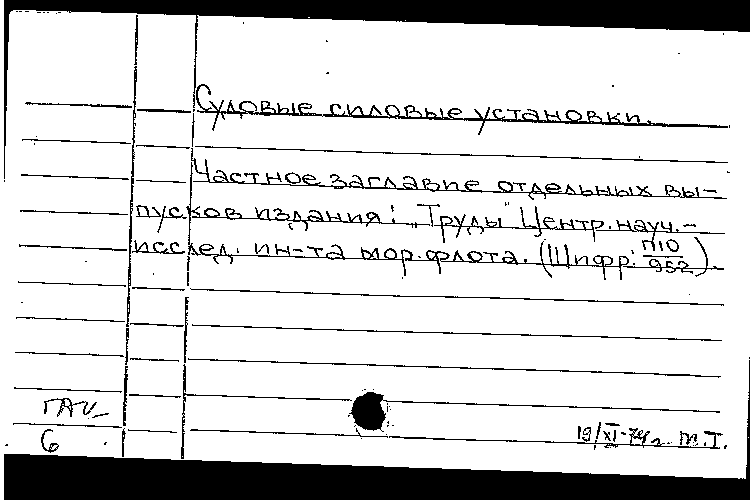 Судовые силовые установки.
Частное заглавие отдельных вы-
пусков издания: „Труды" Центр. науч.-
исслед. ин-та мор. флота. (Шифр: П10/952).
6
19/XI-74 г. М.Т.